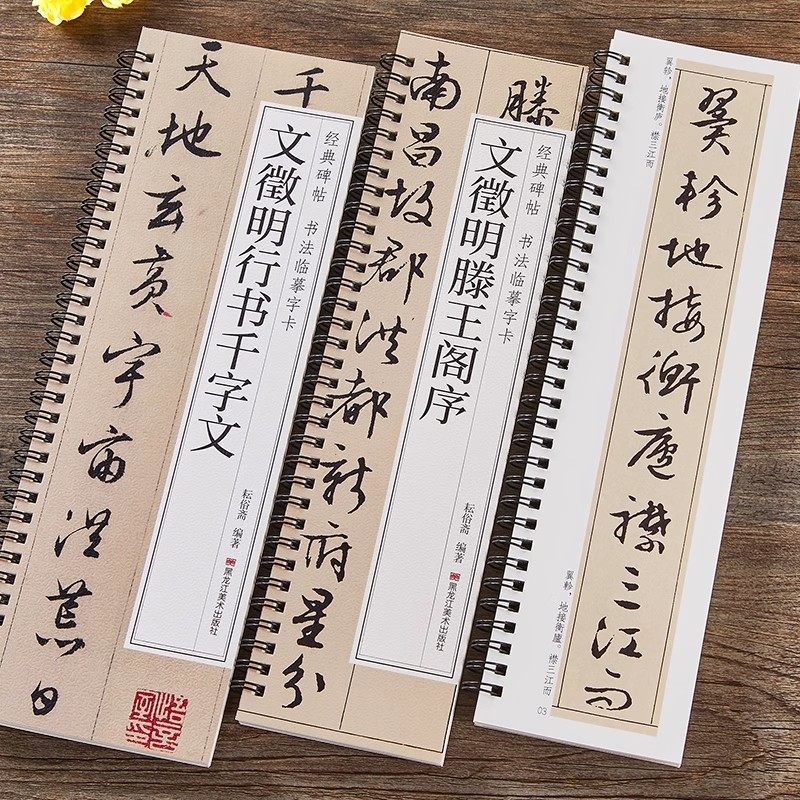 千
经典碑帖 书法临摹字卡
文徵明行书千字文
耘俗斋 编著
黑龙江美术出版社
天地玄黄宇宙洪荒日
滕
经典碑帖 书法临摹字卡
文徵明滕王阁序
耘俗斋 编著
黑龙江美术出版社
南昌故郡洪都新府星分
翼軫地接衡廬襟三江而
翼轸，地接衡庐。襟三江而
翼軫，地接衡廬。襟三江而
03